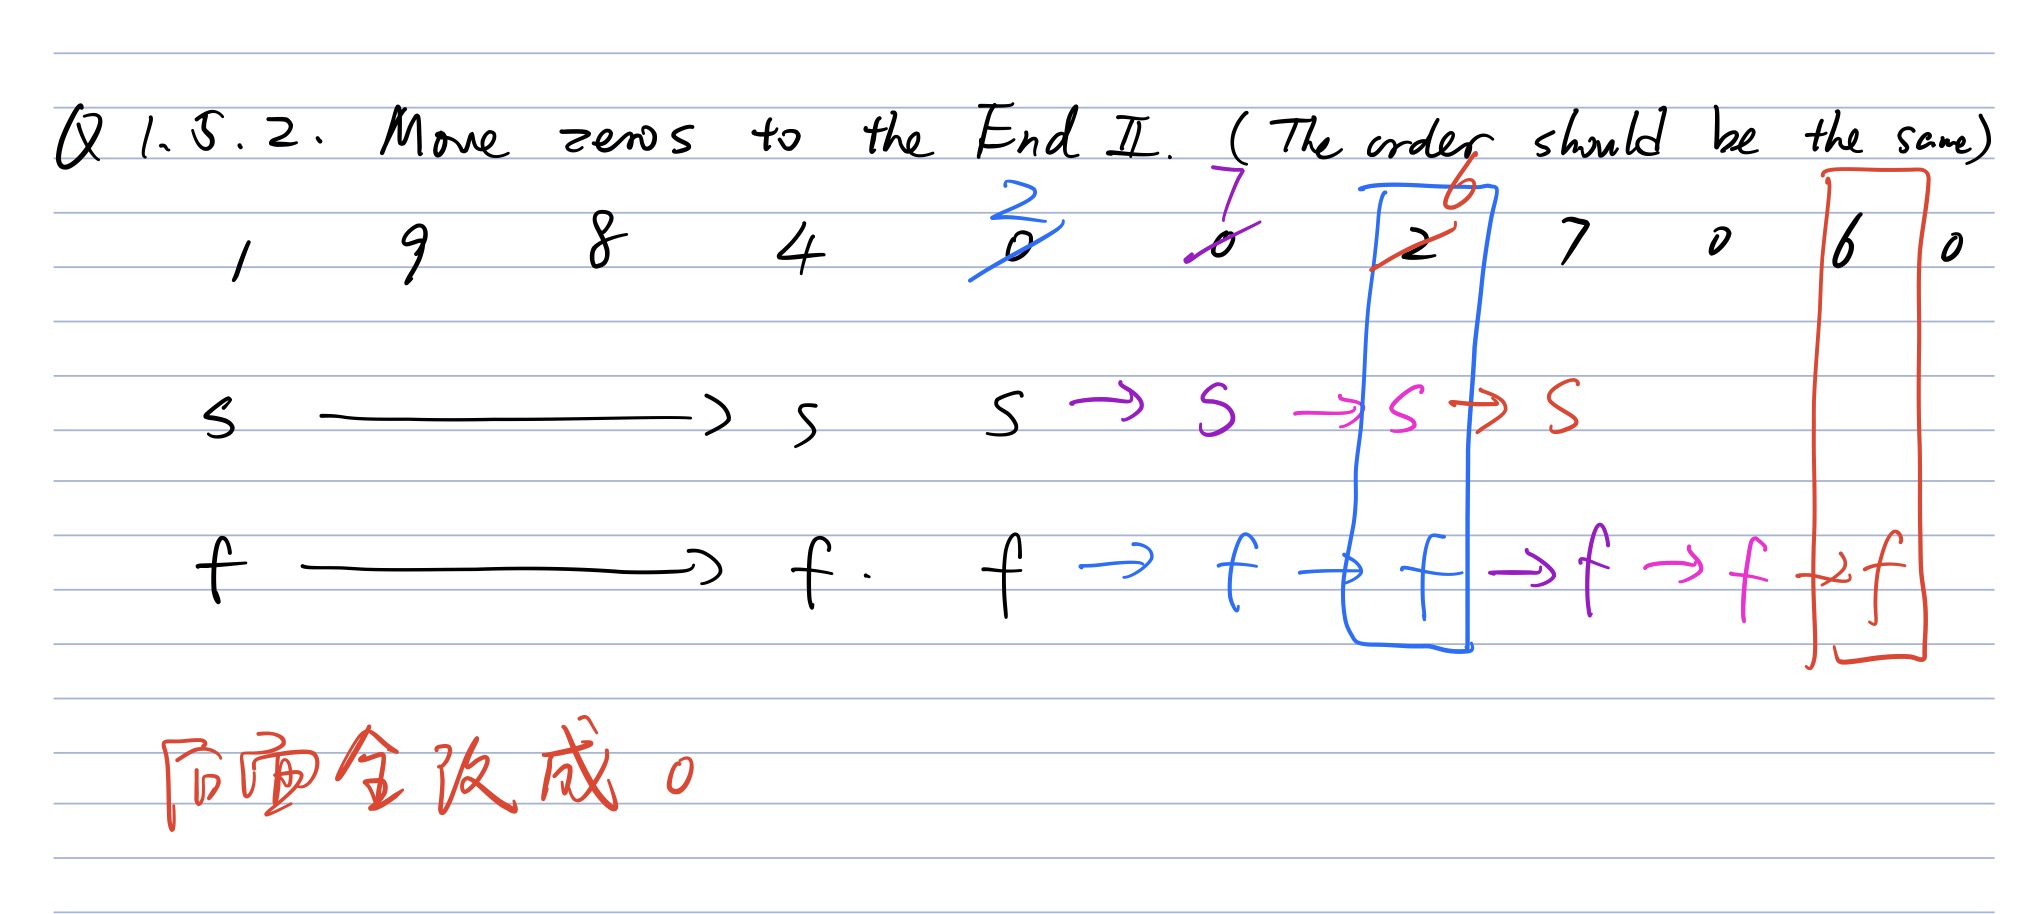 Q 1.5.2. Move zeros to the End II. (The order should be the same)
2 7 6
1 9 8 4 0 0 2 7 0 6 0
s → s s → s → s → s
f → f. f → f → f → f → f → f
后面全改成 0